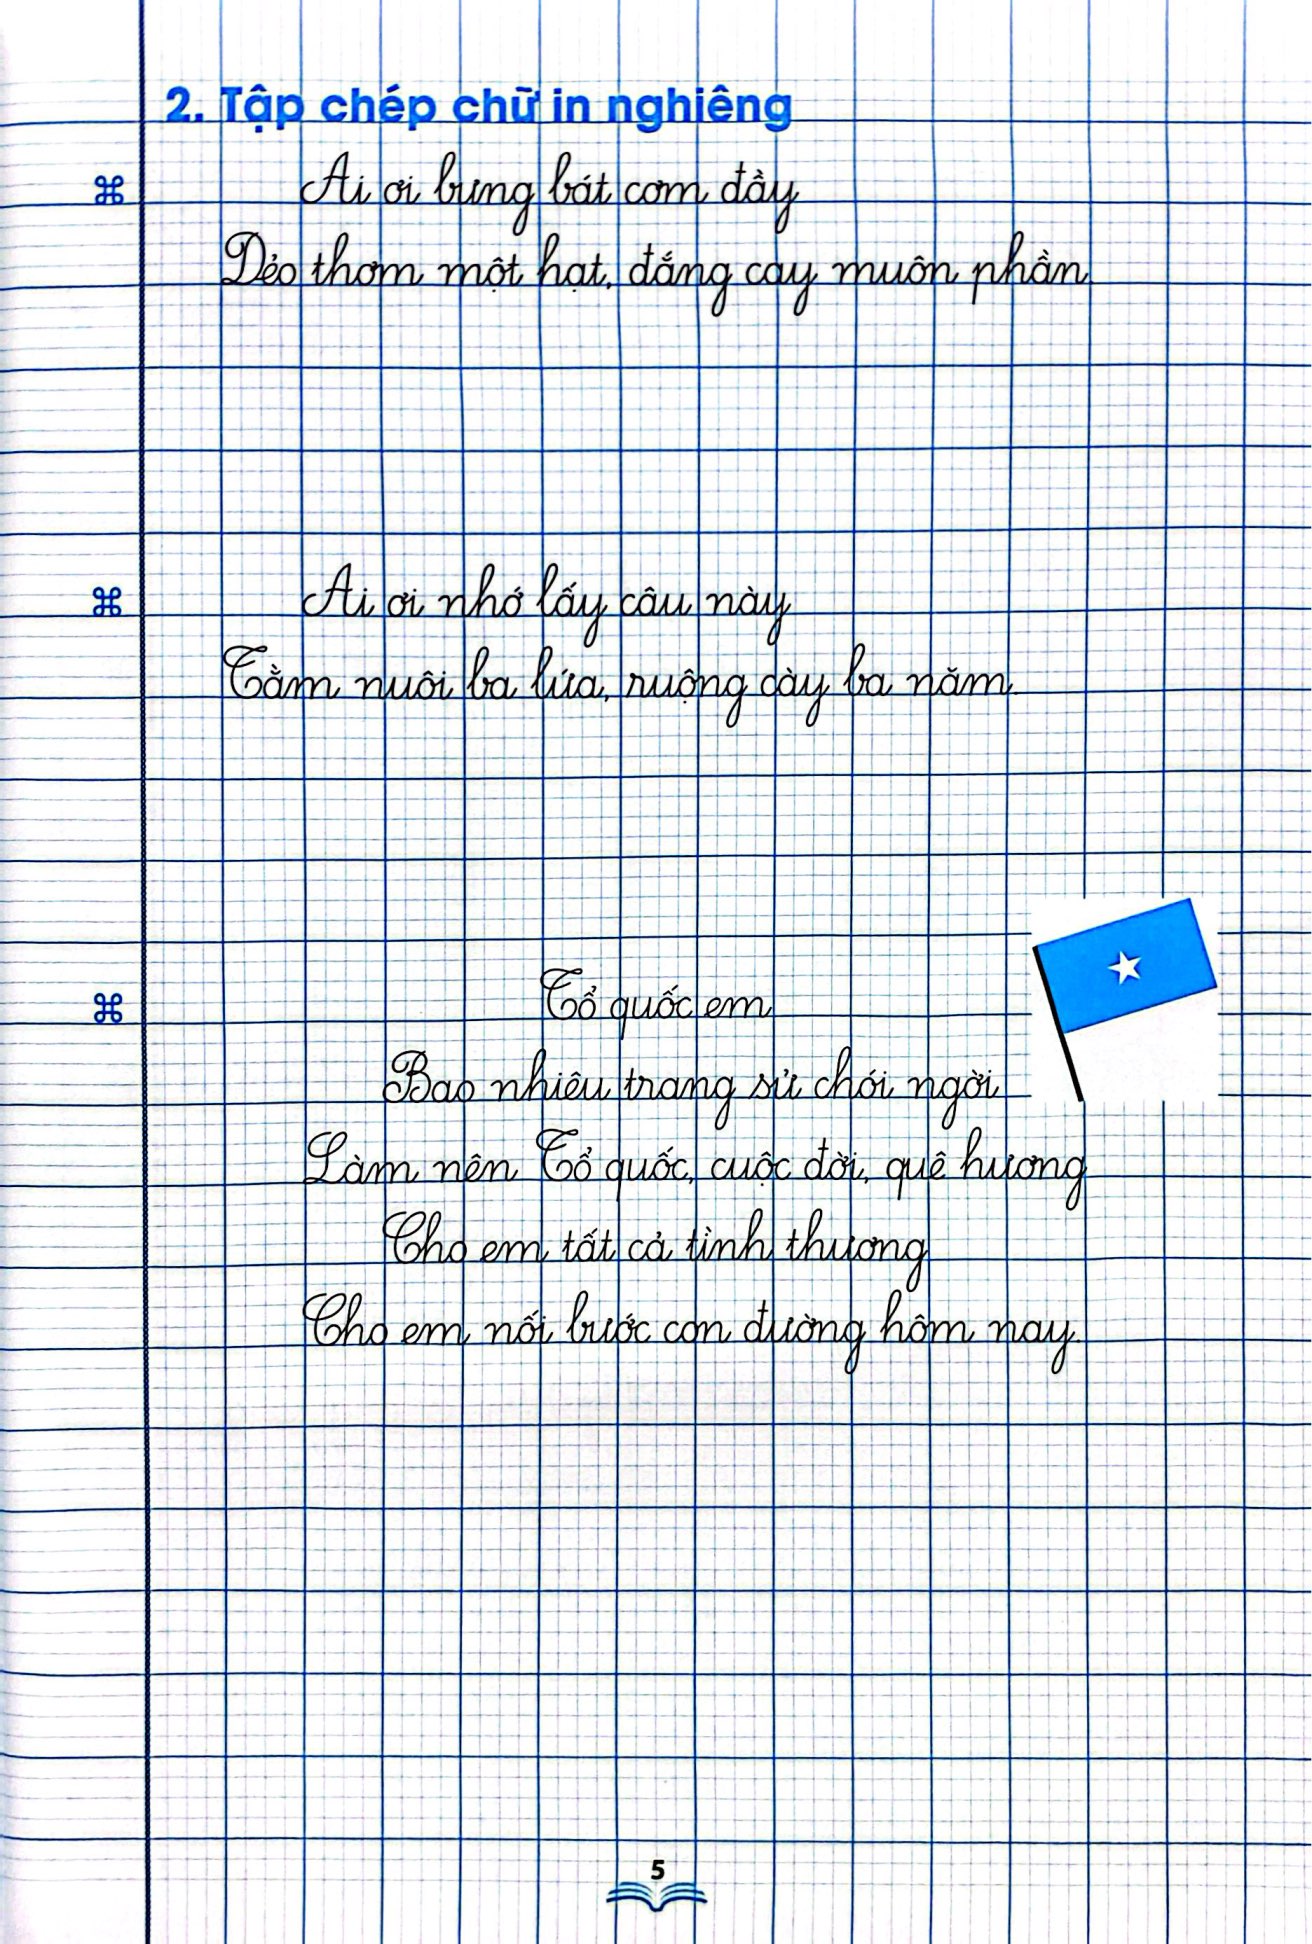 2. Tập chép chữ in nghiêng
Ai ơi bưng bát cơm đầy
Dẻo thơm một hạt, đắng cay muôn phần.
Ai ơi nhớ lấy câu này
Tằm nuôi ba lứa, ruộng cày ba năm.
Tổ quốc em
Bao nhiêu trang sử chói ngời
Làm nên Tổ quốc, cuộc đời, quê hương
Cho em tất cả tình thương
Cho em nối bước con đường hôm nay.
5